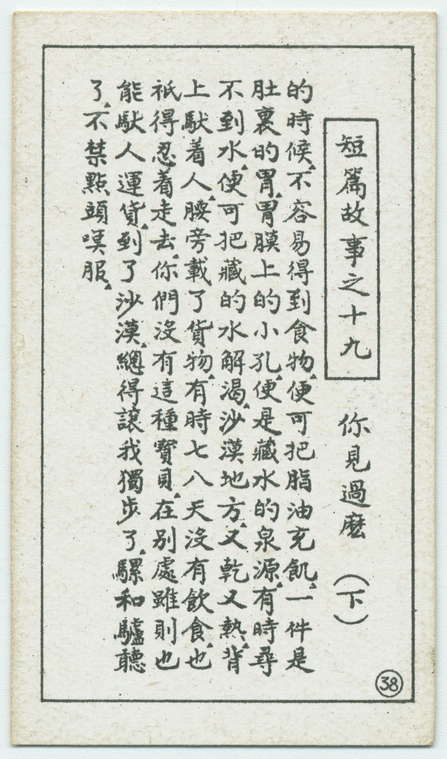 短篇故事之十九 你見過麽 (下)
的時候、不容易得到食物、便可把脂油充飢、一件是
肚裏的胃、胃膜上的小孔、便是藏水的泉源、有時尋
不到水、便可把藏的水解渴、沙漠地方、又乾又熱、背
上馱着人、腰旁載了貨物、有時七八天沒有飲食、也
祇得忍着走去、你們沒有這種寶貝、在别處雖則也
能馱人運貨、到了沙漠、總得讓我獨步了、騾和驢聽
了、不禁點頭嘆服、
38